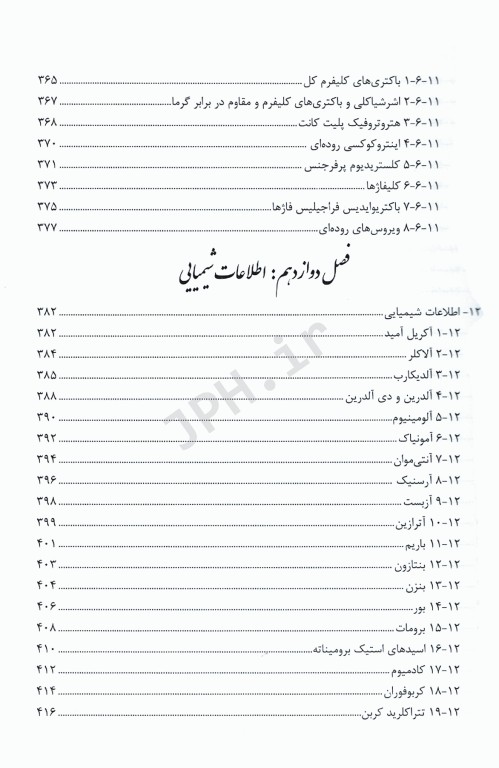 ۱-۶-۱۱ باکتری‌های کلیفرم کل ۳۶۵
۲-۶-۱۱ اشرشیاکلی و باکتری‌های کلیفرم و مقاوم در برابر گرما ۳۶۷
۳-۶-۱۱ هتروتروفیک پلیت کانت ۳۶۸
۴-۶-۱۱ اینتروکوکسی روده‌ای ۳۷۰
۵-۶-۱۱ کلستریدیوم پرفرجنس ۳۷۱
۶-۶-۱۱ کلیفاژها ۳۷۳
۷-۶-۱۱ باکتریوایدیس فراجیلیس فاژها ۳۷۵
۸-۶-۱۱ ویروس‌های روده‌ای ۳۷۷
فصل دوازدهم: اطلاعات شیمیایی
۱۲- اطلاعات شیمیایی ۳۸۲
۱-۱۲ آکریل آمید ۳۸۲
۲-۱۲ آلاکلر ۳۸۴
۳-۱۲ آلدیکارب ۳۸۵
۴-۱۲ آلدرین و دی آلدرین ۳۸۸
۵-۱۲ آلومینیوم ۳۹۰
۶-۱۲ آمونیاک ۳۹۲
۷-۱۲ آنتی‌موان ۳۹۴
۸-۱۲ آرسنیک ۳۹۶
۹-۱۲ آزبست ۳۹۸
۱۰-۱۲ آترازین ۳۹۹
۱۱-۱۲ باریم ۴۰۱
۱۲-۱۲ بنتازون ۴۰۳
۱۳-۱۲ بنزن ۴۰۴
۱۴-۱۲ بور ۴۰۶
۱۵-۱۲ برومات ۴۰۸
۱۶-۱۲ اسیدهای استیک برومیناته ۴۱۰
۱۷-۱۲ کادمیوم ۴۱۲
۱۸-۱۲ کربوفوران ۴۱۴
۱۹-۱۲ تتراکلرید کربن ۴۱۶
JPH.ir